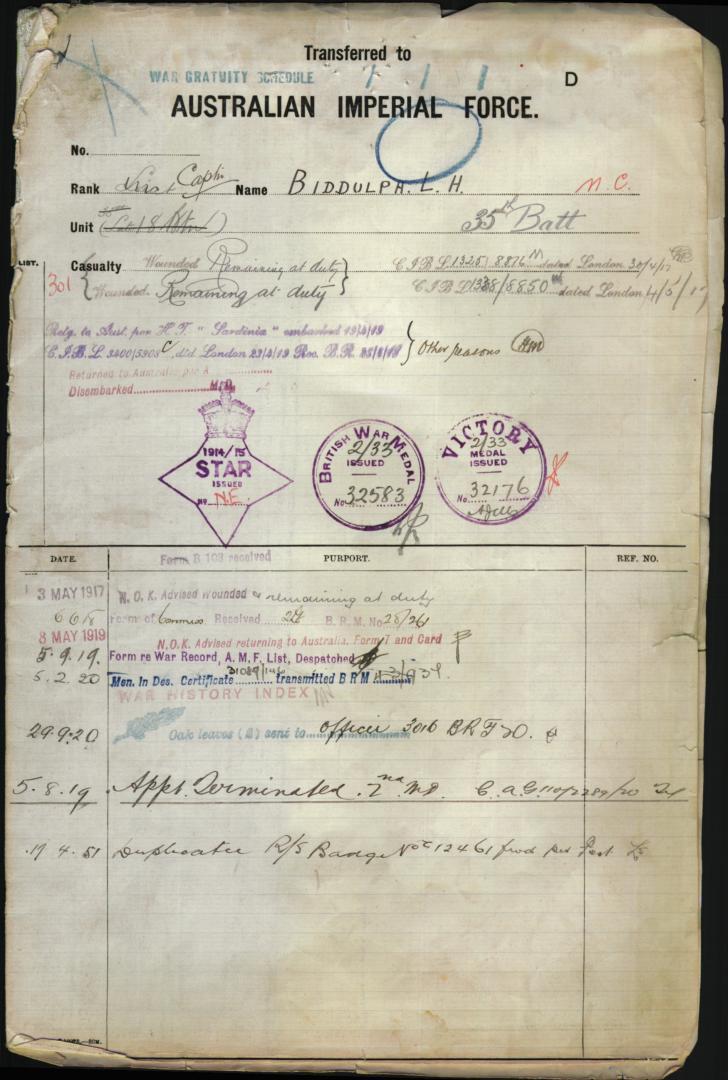 Transferred to
WAR GRATUITY SCHEDULE 1 1 1 D
AUSTRALIAN IMPERIAL FORCE.
No.
Rank Capt. Name BIDDULPH. L. H. M.C.
Unit 35th Batt
LIST.
Casualty Wounded Remaining at duty C.I.B.L. 1325/8876 M dated London 30/4/17
301 Wounded. Remaining at duty C.I.B.L. 1338/8850 dated London 4/5/17
Retg. to Aust. per H.T. "Sardinia" embarked
C.I.B.L. 3400/5908 C d'd. London Rec. B.R. Other reasons
Returned to Australia per A
Disembarked M.D.
1914/15 STAR ISSUED No. N.E.
BRITISH WAR MEDAL 2/33 ISSUED No. 32583
VICTORY MEDAL 2/33 ISSUED No. 32176
Form B 103 received
DATE. PURPORT. REF. NO.
3 MAY 1917 N.O.K. Advised Wounded & remaining at duty
Form of Received B.R.M. No 28/261
8 MAY 1919 N.O.K. Advised returning to Australia. Form T and Card
5.9.19. Form re War Record, A.M.F. List, Despatched
5.2.20 Men. In Des. Certificate transmitted B R M
WAR HISTORY INDEX
29.9.20 Oak leaves (2) sent to officer 3016 BRF 20.
5.8.19 Appt. Terminated. 2nd MD. C.A.G. 110/2289/20
19.4.51 Duplicate R/S Badge No 12461 fwd per Post